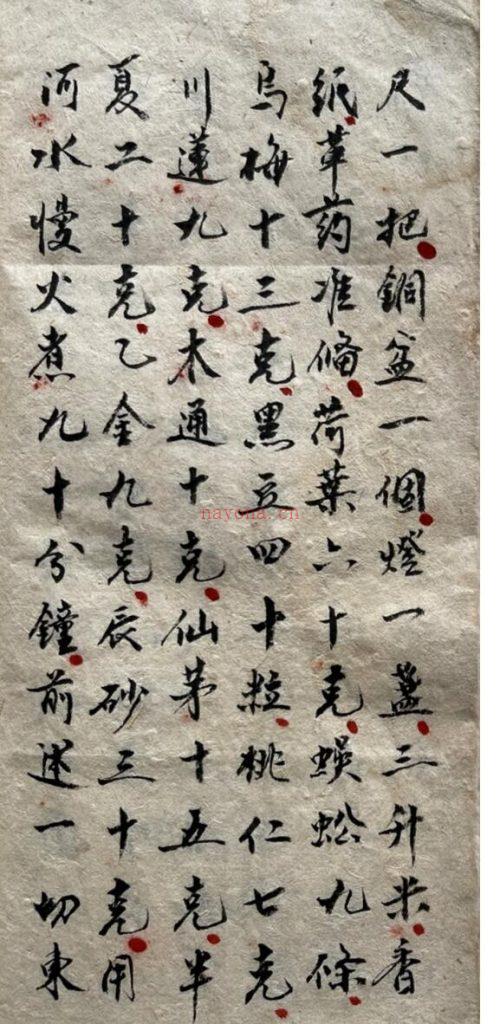 尺一把銅盆一個燈一盞三升米香
紙革药准俻荷葉六十克蜈蚣九條
烏梅十三克黑豆四十粒桃仁七克
川蓮九克木通十克仙茅十五克半
夏二十克乙金九克辰砂三十克用
河水慢火煮九十分鐘前述一切東
nayona.cn